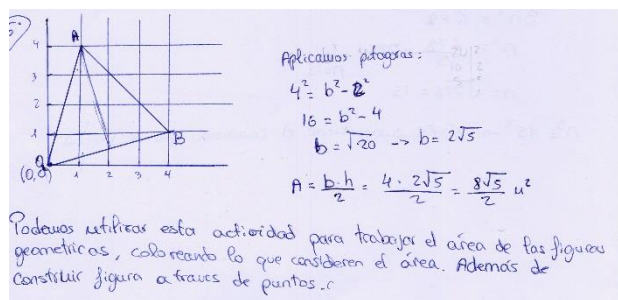 5.
A
4
3
2
1
B
(0,0)
1 2 3 4
Aplicamos pitagoras:
4² = b² - 2²
16 = b² - 4
b = √20 -> b = 2√5
A = b·h/2 = 4·2√5/2 = 8√5/2 u²
20 2
10 2
5
Podemos utilizar esta actividad para trabajar el área de las figuras
geometricas, coloreando lo que consideren el área. Además de
construir figura a traves de puntos.